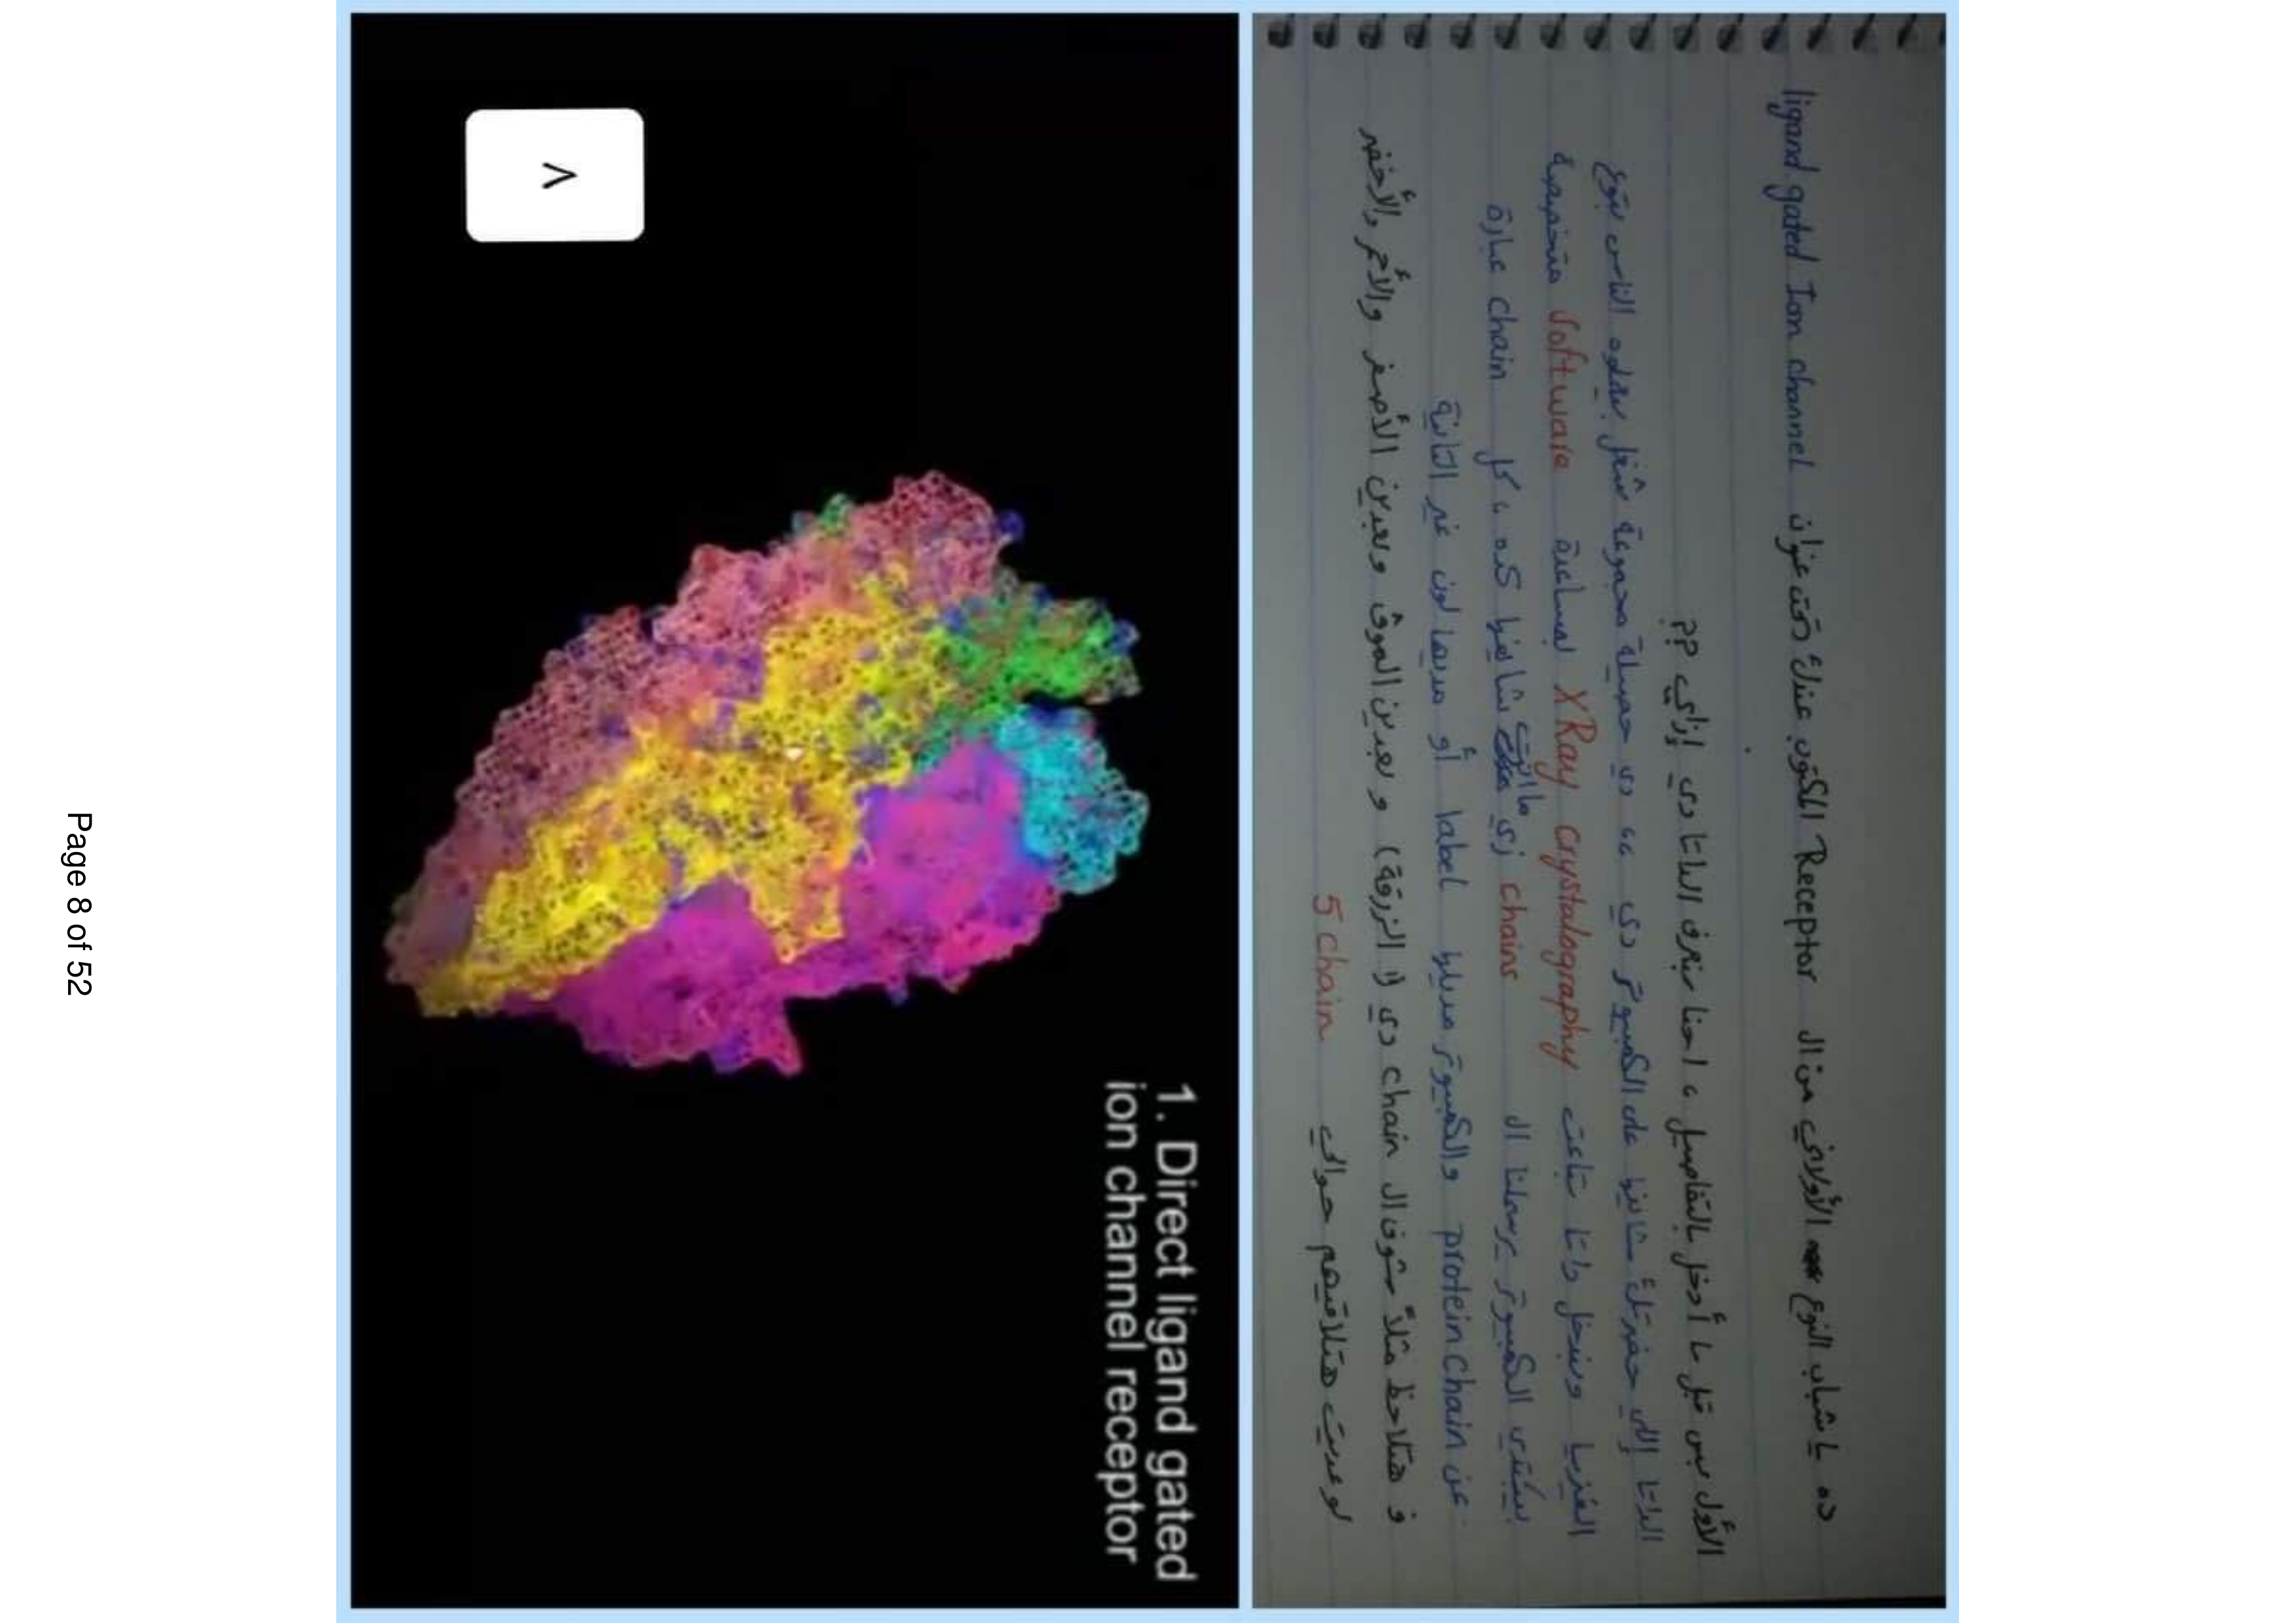 ده يا شباب النوع الأولاني من ال Receptor المكتوب عندك تحت عنوان ligand gated Ion channel
الأول بس قبل ما أدخل بالتفاصيل ، احنا بنعرف الداتا دي إزاي ؟؟
الداتا إللي حضرتك شايفها على الكمبيوتر دي ،، دي حصيلة مجموعة شغل بيعملوه الناس بتوع
الفيزيا وبندخل داتا بتاعت XRay crystalography بمساعدة software متخصصة
بيبتدي الكمبيوتر يرسملنا ال chains زي ما انت شايفها كده ، كل chain عبارة
عن protein chain والكمبيوتر مديلها label أو مديها لون غير التانية
و هتلاحظ مثلاً شوف ال chain دي (الزرقة) و بعدين الموف وبعدين الأصفر والأحمر والأخضر
لو عديت هتلاقيهم حوالي 5 chain
1. Direct ligand gated
ion channel receptor
>
Page 8 of 52